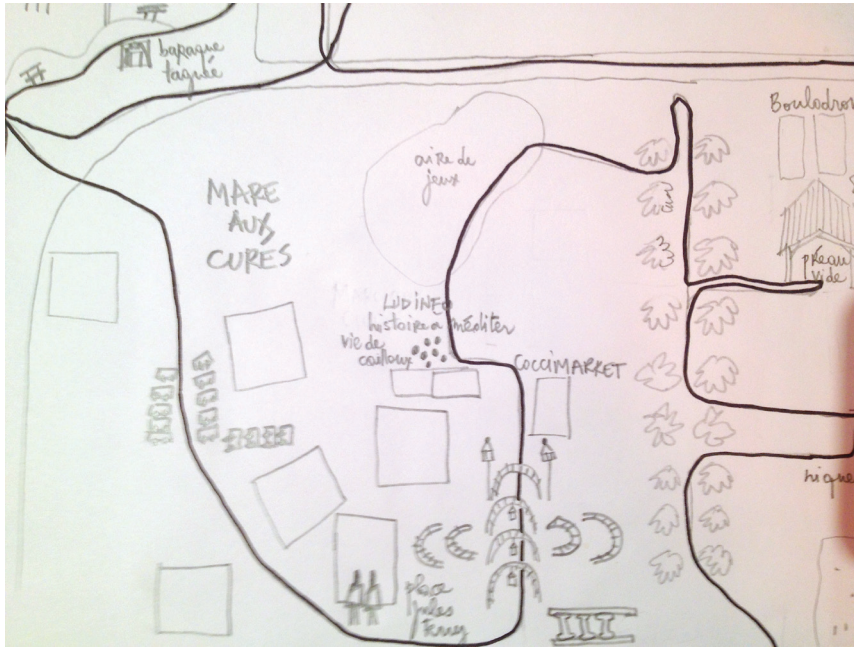 baraque
taguée
Boulodron
aire de
jeux
MARE
AUX
CURES
préau
vide
LUDINEO
histoire à méditer
vie de
cailloux
COCCIMARKET
nique
place
jules
ferry